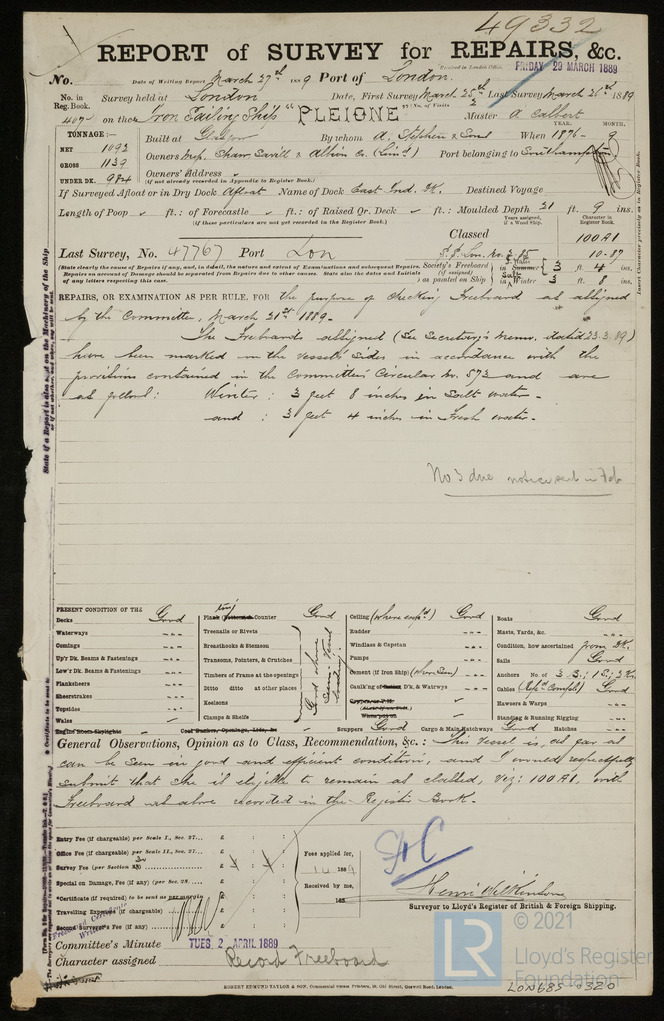 49332
REPORT of SURVEY for REPAIRS, &c.
Received in London Office
FRIDAY 29 MARCH 1889
No. Date of Writing Report March 27th 1889 Port of London.
No. in Reg. Book. Survey held at London Date, First Survey March 25th Last Survey March 26th 1889
(No. of Visits 2)
407 on the Iron Sailing Ship "PLEIONE" Master A Culbert
TONNAGE:— YEAR. MONTH.
NET 1092 Built at By whom A. Stephen & Sons When 1876 - 9
GROSS 1139 Owners Shaw Savill & Albion Co. (Limd) Port belonging to Southampton
UNDER DK. 984 Owners' Address
(if not already recorded in Appendix to Register Book.)
If Surveyed Afloat or in Dry Dock Afloat Name of Dock East Ind. Dk. Destined Voyage
Length of Poop ft.: of Forecastle ft.: of Raised Qr. Deck ft.: Moulded Depth 21 ft. 9 ins.
(if these particulars are not yet recorded in the Register Book.)
Years assigned, if a Wood Ship. Character in Register Book.
Classed 100A1
Last Survey, No. 47767 Port Lon 10-87
(State clearly the cause of Repairs if any, and, in detail, the nature and extent of Examinations and subsequent Repairs. Repairs on account of Damage should be separated from Repairs due to other causes. State also the dates and Initials of any letters respecting this case.
Society's Freeboard (if assigned) as painted on Ship in Summer 3 ft. 4 ins.
in Winter 3 ft. 8 ins.
REPAIRS, OR EXAMINATION AS PER RULE, FOR the purpose of checking Freeboard as assigned
by the Committee, March 21st 1889.
The Freeboards assigned (See Secretary's Memo. dated 23.3.89)
have been marked on the vessel's sides in accordance with the
provisions contained in the Committee's Circular No. 573 and are
as follows: Winter: 3 feet 8 inches in Salt water.
and: 3 feet 4 inches in Fresh water.
No 3 due notice sent in Feb
PRESENT CONDITION OF THE
Decks Good
Waterways
Comings
Up'r Dk. Beams & Fastenings
Low'r Dk. Beams & Fastenings
Planksheers
Sheerstrakes
Topsides
Wales
Engine Room Skylights
Plank Counter Good
Treenails or Rivets
Breasthooks & Stemson
Transoms, Pointers, & Crutches
Timbers of Frame at the openings
Ditto ditto at other places
Keelsons
Clamps & Shelfs
Good where seen
Coal Bunker, Openings, Lids, &c.
Ceiling (where expd) Good
Rudder
Windlass & Capstan
Pumps
Cement (if Iron Ship) (where seen)
Caulk'g of Dk. & Watrwys
Scuppers Good Cargo & Main Hatchways Good Hatches
Boats Good
Masts, Yards, &c.
Condition, how ascertained from Dk.
Sails Good
Anchors No. of 3 B; 1 S; 2 K
Cables Good
Hawsers & Warps
Standing & Running Rigging
General Observations, Opinion as to Class, Recommendation, &c.: This Vessel is, as far as
can be seen in good and efficient condition, and I would respectfully
submit that she is eligible to remain as classed, viz: 100A1, with
Freeboard as above recorded in the Register Book.
Entry Fee (if chargeable) per Scale I., Sec. 27... £ : :
Office Fee (if chargeable) per Scale II., Sec. 27... £ : :
Survey Fee (per Section 28) £
Special on Damage, Fee (if any) (per Sec. 28. £ : :
*Certificate (if required) to be sent as per margin £
Travelling Expenses (if chargeable) £ : :
Second Surveyor's Fee (if any) £ : :
Fees applied for,
188
Received by me,
188
Henri Wilkinson
Surveyor to Lloyd's Register of British & Foreign Shipping.
Committee's Minute TUES 2 APRIL 1889
Character assigned Record Freeboard
ROBERT EDMUND TAYLOR & SON, Commercial Steam Printers, 19, Old Street, Goswell Road, London.
LR
© 2021
Lloyd's Register
Foundation
LON685-0320
State if a Report is also sent on the Machinery of the Ship
Insert Character precisely as in Register Book.